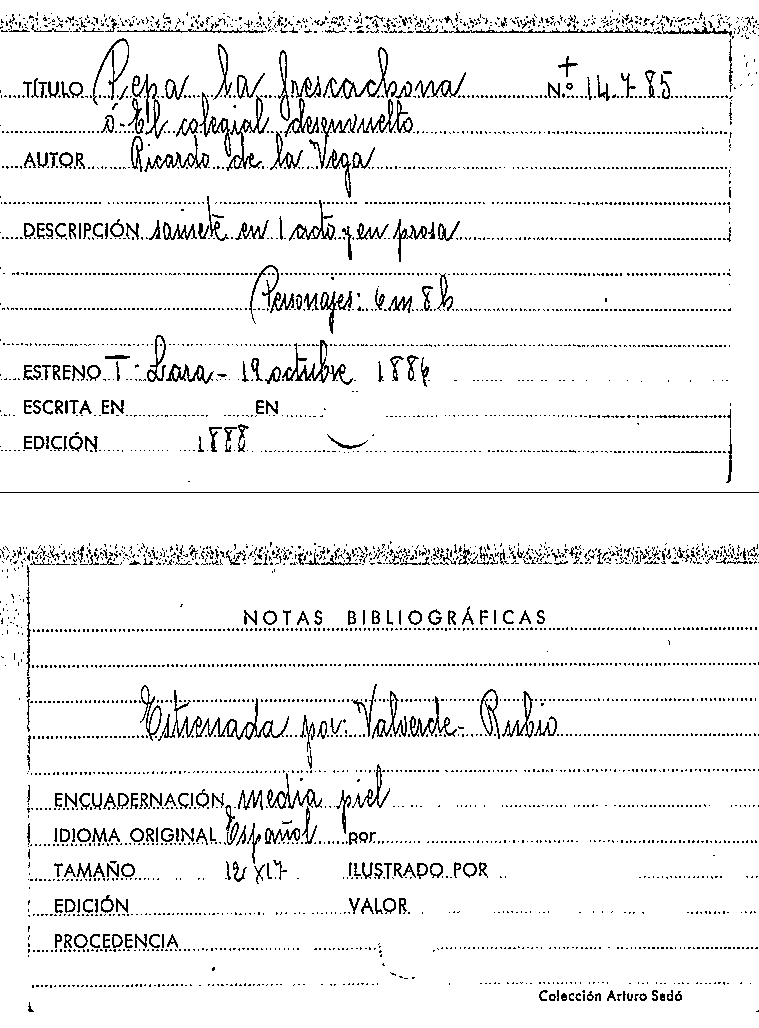 TÍTULO Pepa la frescachona N.º + 14785
ó El colegial desenvuelto
AUTOR Ricardo de la Vega
DESCRIPCIÓN sainete en 1 acto y en prosa
Personajes: 6 m 8 h
ESTRENO T. Lara - 19 octubre 1886
ESCRITA EN EN
EDICIÓN 1888
NOTAS BIBLIOGRÁFICAS
Estrenada por: Valverde - Rubio
ENCUADERNACIÓN media piel
IDIOMA ORIGINAL Español por
TAMAÑO 12 x 17 ILUSTRADO POR
EDICIÓN VALOR
PROCEDENCIA
Colección Arturo Sedó